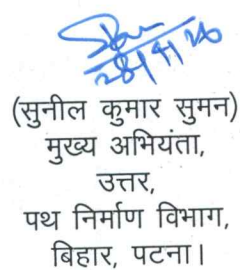 (सुनील कुमार सुमन)
मुख्य अभियंता,
उत्तर,
पथ निर्माण विभाग,
बिहार, पटना।